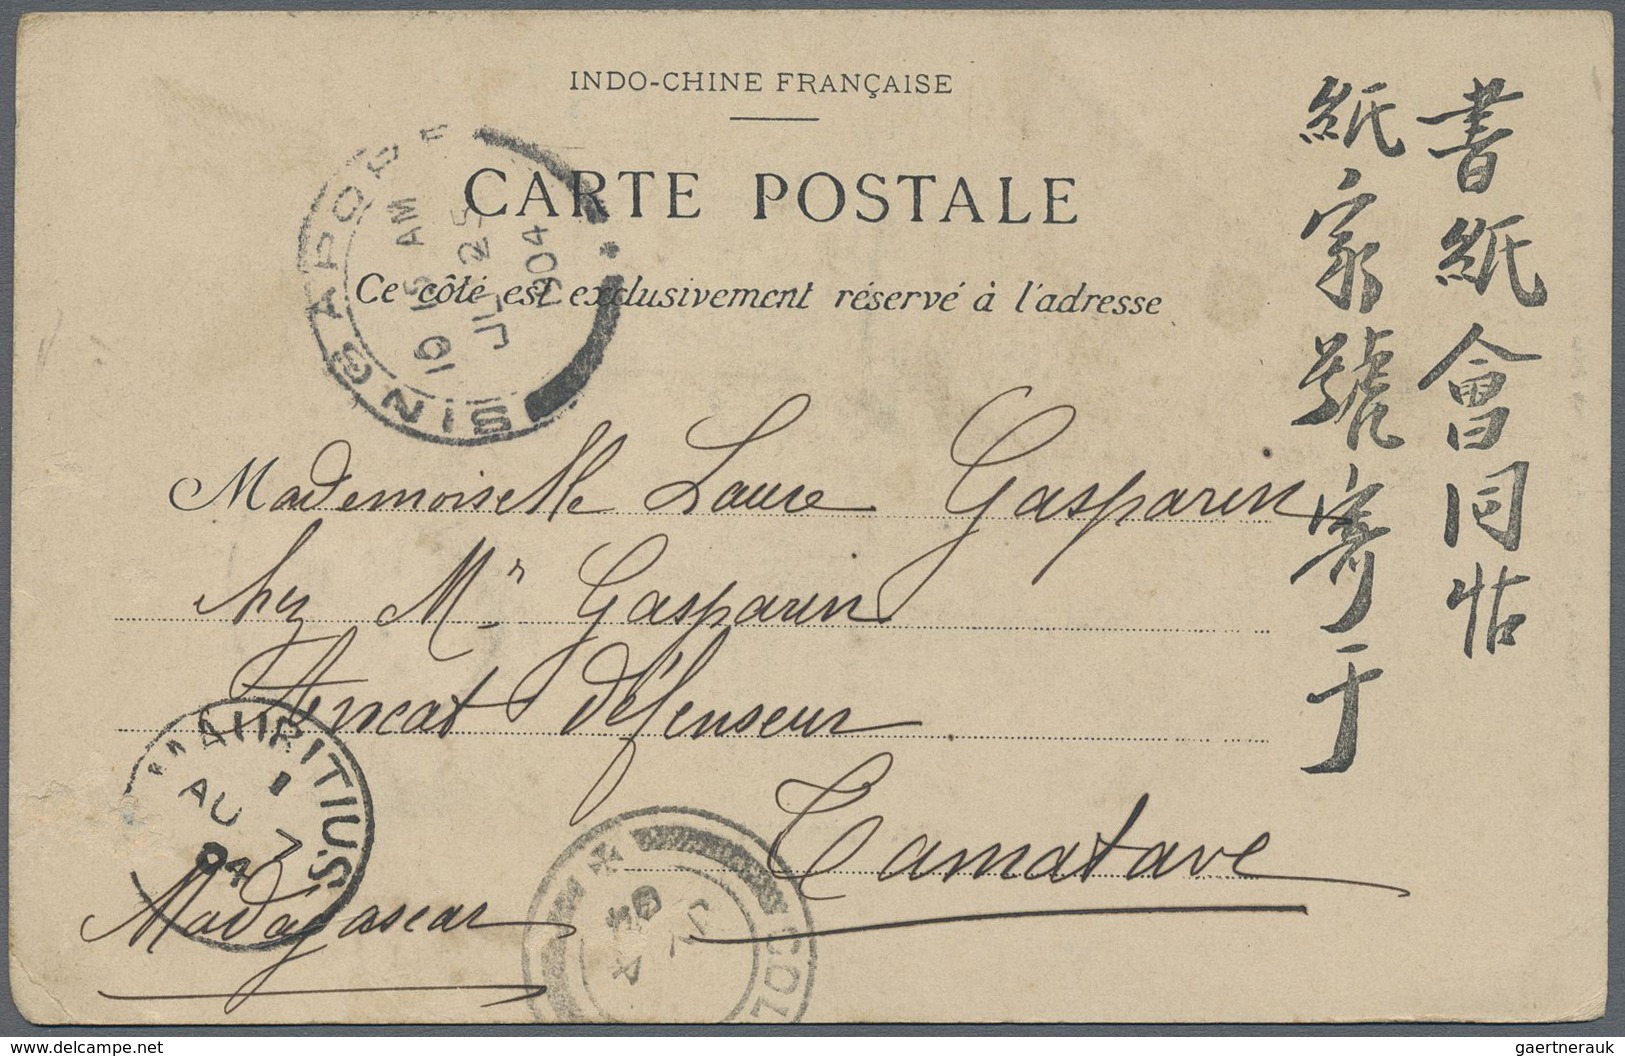 INDO-CHINE FRANÇAISE
CARTE POSTALE
Ce côté est exclusivement réservé à l'adresse
SINGAPORE
10 15 AM
JL 25
1904
書紙會同帖
紙家號寄于
Mademoiselle Laure Gasparin
chez Mr Gasparin
défenseur
Tamatave
Madagascar
MAURITIUS
AU 7
04
COL
gaertnerauk